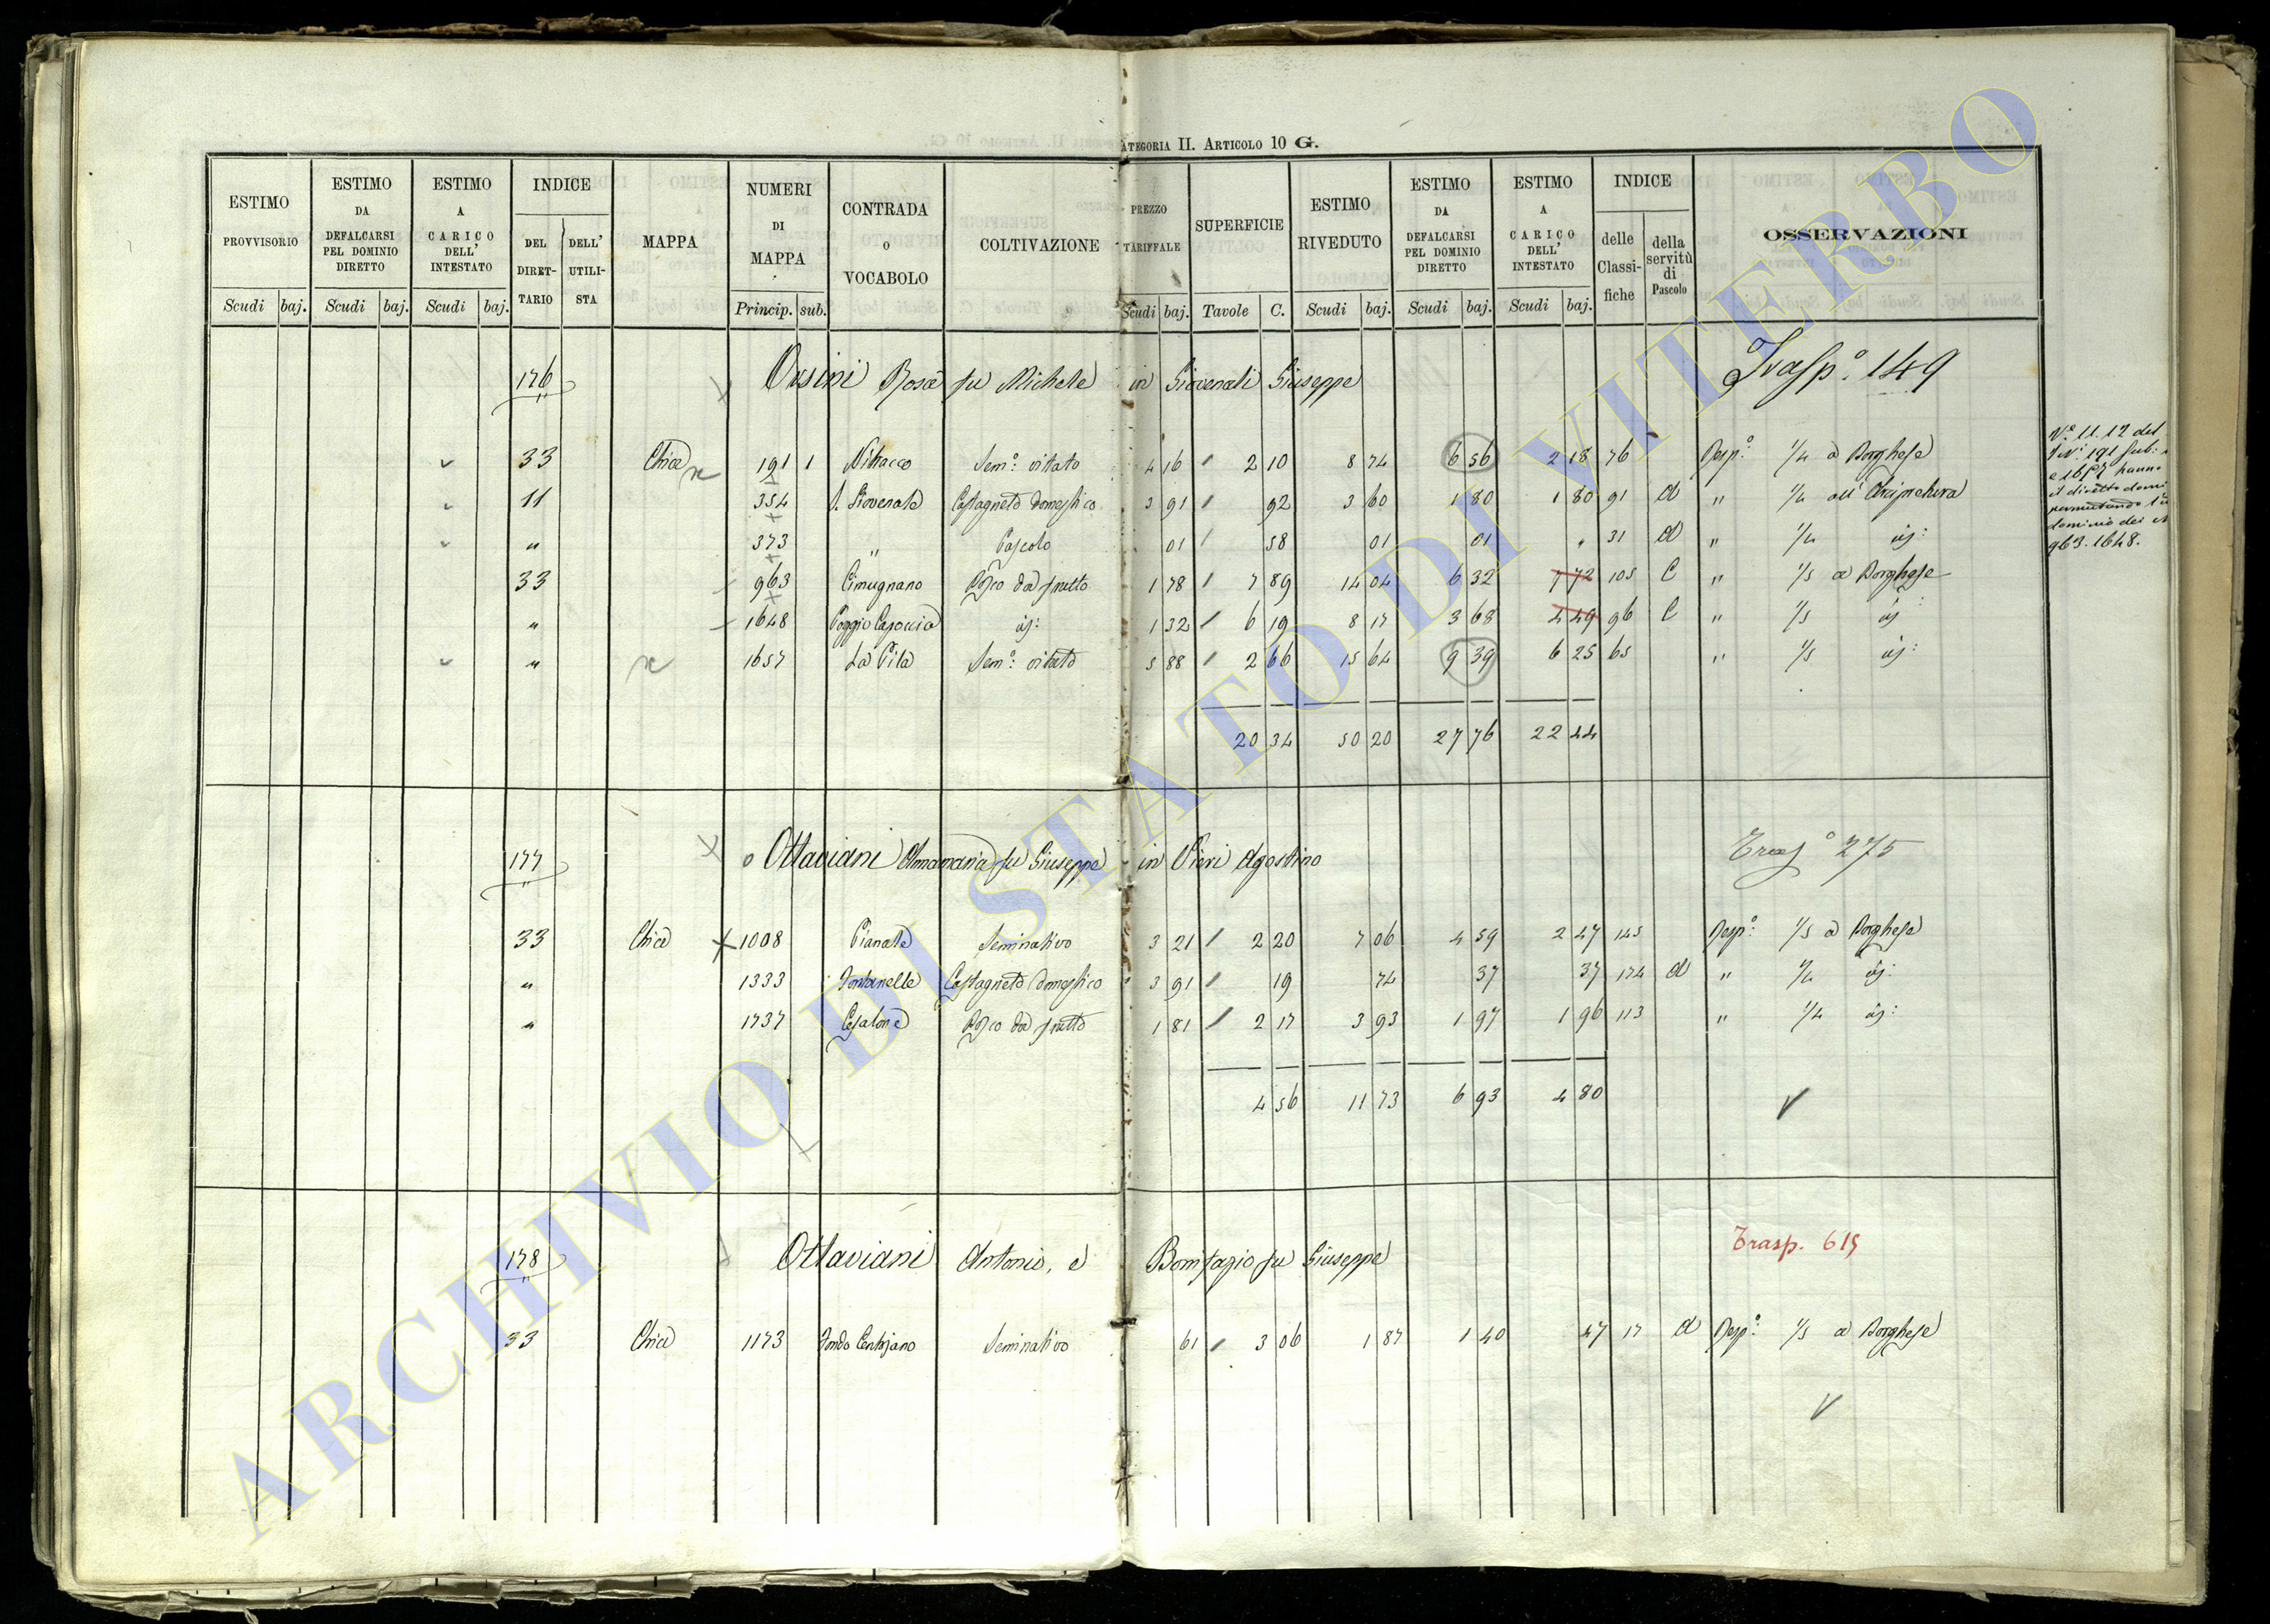 ATEGORIA II. ARTICOLO 10 G.
ESTIMO PROVVISORIO Scudi baj.
ESTIMO DA DEFALCARSI PEL DOMINIO DIRETTO Scudi baj.
ESTIMO A CARICO DELL' INTESTATO Scudi baj.
INDICE DEL DIRET- TARIO DELL' UTILI- STA
MAPPA
NUMERI DI MAPPA Princip. sub.
CONTRADA O VOCABOLO
COLTIVAZIONE
PREZZO TARIFFALE Scudi baj.
SUPERFICIE Tavole C.
ESTIMO RIVEDUTO Scudi baj.
ESTIMO DA DEFALCARSI PEL DOMINIO DIRETTO Scudi baj.
ESTIMO A CARICO DELL' INTESTATO Scudi baj.
INDICE delle Classi- fiche della servitù di Pascolo
OSSERVAZIONI
176 Orsini Rosa fu Michele in Giovenali Giuseppe Trasp.º 149
33 Chia 191 1 Nibacco Sem.º vitato 4 16 2 10 8 74 6 56 2 18 76 Risp.º 1/4 a Borghese
11 354 S. Giovenale Castagneto domestico 3 91 92 3 60 1 80 1 80 91 d " 1/4 all' Arcipretura
" 373 " Pascolo 01 58 01 01 " 31 d " 1/4 id:
33 963 Cimugnano Bosco da frutto 1 78 7 89 14 04 6 32 7 72 105 C " 1/5 a Borghese
" 1648 Poggio id: 1 32 6 19 8 17 3 68 4 49 96 C " 1/5 id
" 1657 La Pila Sem.º vitato 5 88 2 66 15 64 9 39 6 25 65 " 1/5 id:
20 34 50 20 27 76 22 44
Nº 11. 12 del
191 sub: 1
e 1657 hanno
il diretto domi
permutando l'u
dominio dei
963. 1648.
177 Ottaviani Annamaria fu Giuseppe in Pieri Agostino Trasº 275
33 Chia 1008 Pianale Seminativo 3 21 2 20 7 06 4 59 2 47 145 Risp.º 1/5 a Borghese
" 1333 Fontanelle Castagneto domestico 3 91 19 74 37 37 174 d " 1/4 id:
" 1737 Cesalone Bosco da frutto 1 81 2 17 3 93 1 97 1 96 113 " 1/4 id:
4 56 11 73 6 93 4 80
178 Ottaviani Antonio, e Bonifazio fu Giuseppe Trasp. 615
33 Chia 1173 Fondo Seminativo 61 3 06 1 87 1 40 47 17 d Risp.º 1/5 a Borghese
ARCHIVIO DI STATO DI VITERBO